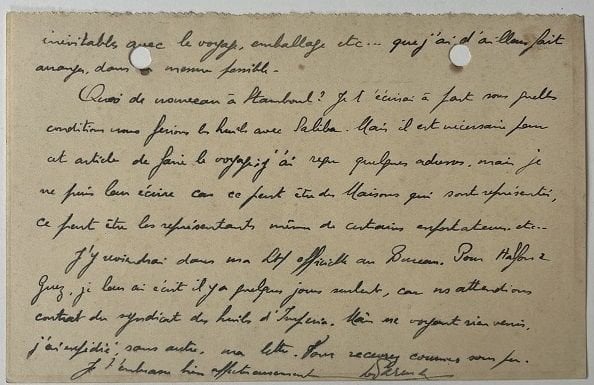 inévitables avec le voyage, emballage etc... que j'ai d'ailleurs fait
arranger, dans la mesure possible.
Quoi de nouveau à Stamboul? Je t'écrirai à part sous quelles
conditions nous ferions les huiles avec Saliba. Mais il est nécessaire pour
cet article de faire le voyage; j'ai reçu quelques adresses, mais je
ne puis leur écrire car ce peut être des Maisons qui sont représentées,
ce peut être les représentants même de certains exportateurs etc..
J'y reviendrai dans ma officielle au Bureau. Pour
je leur ai écrit il y a quelques jours seulent, car ns attendions
contrat du syndicat des huiles d' Mais ne voyant rien venir,
j'ai expédié, sans autre, ma lettre. Vous recevrez courrier sous peu.
Je t'embrasse bien affectueusement